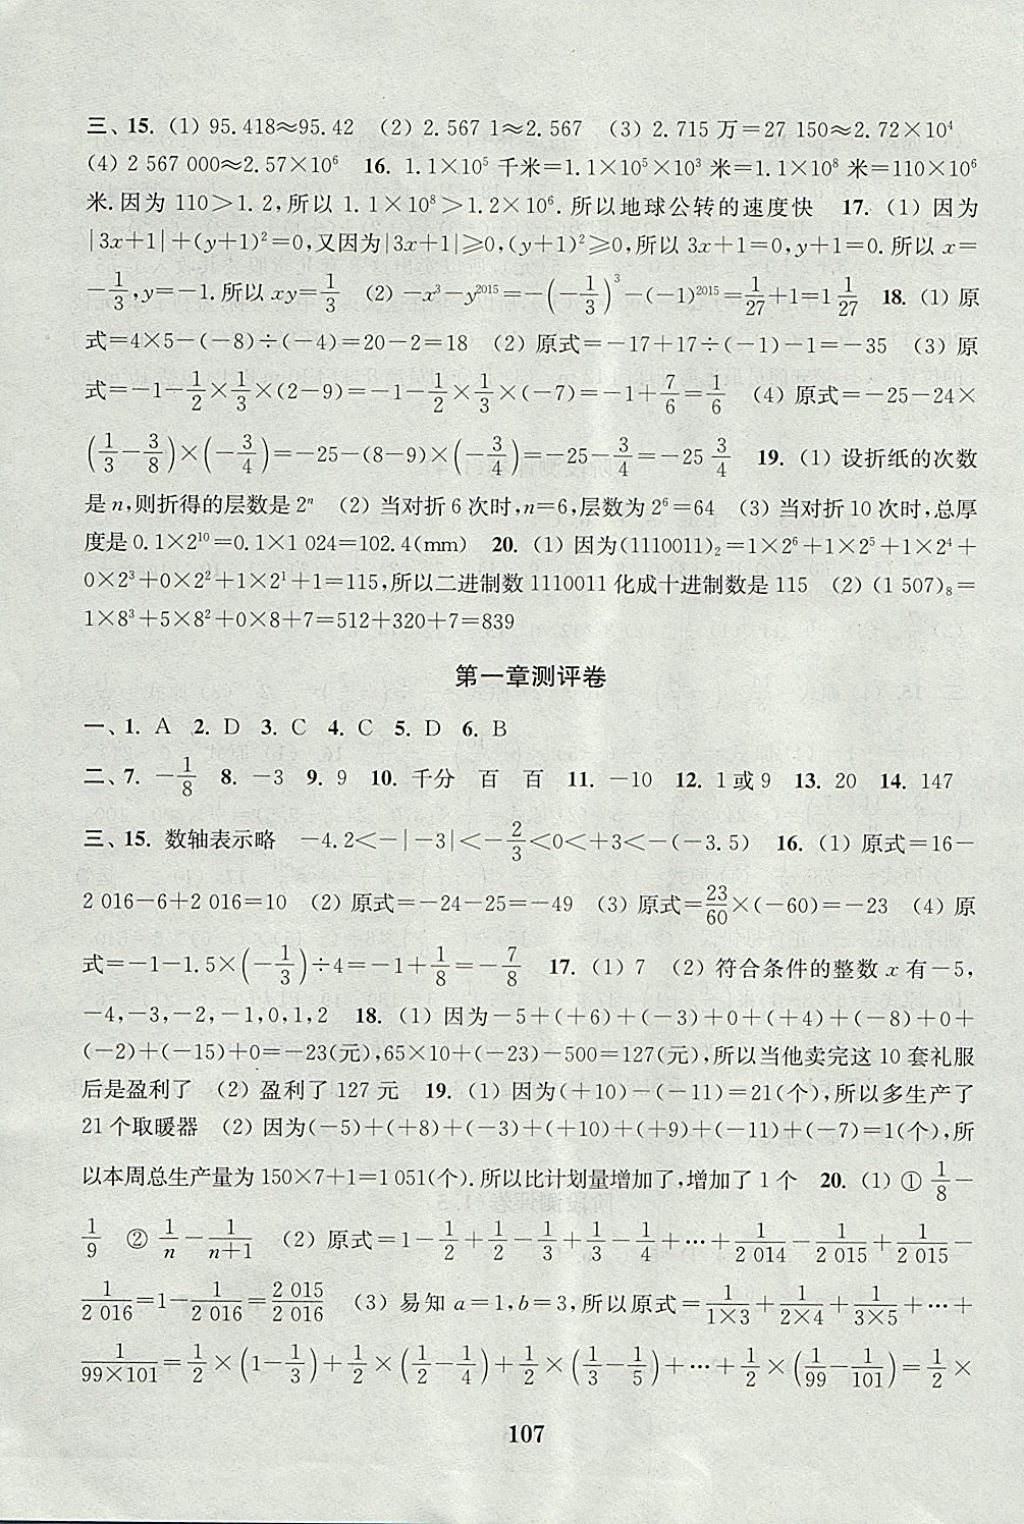 三、15. (1) 95.418≈95.42 (2) 2.567 1≈2.567 (3) 2.715 万=27 150≈2.72×10⁴
(4) 2 567 000≈2.57×10⁶ 16. 1.1×10⁵ 千米=1.1×10⁵×10³ 米=1.1×10⁸ 米=110×10⁶
米.因为 110>1.2,所以 1.1×10⁸>1.2×10⁶.所以地球公转的速度快 17. (1) 因为
|3x+1|+(y+1)²=0,又因为|3x+1|≥0,(y+1)²≥0,所以 3x+1=0,y+1=0.所以 x=
-1/3,y=-1.所以 xy=1/3 (2) -x³-y²⁰¹⁵=-(-1/3)³-(-1)²⁰¹⁵=1/27+1=1 1/27 18. (1) 原
式=4×5-(-8)÷(-4)=20-2=18 (2) 原式=-17+17÷(-1)-1=-35 (3) 原
式=-1-1/2×1/3×(2-9)=-1-1/2×1/3×(-7)=-1+7/6=1/6 (4) 原式=-25-24×
(1/3-3/8)×(-3/4)=-25-(8-9)×(-3/4)=-25-3/4=-25 3/4 19. (1) 设折纸的次数
是 n,则折得的层数是 2ⁿ (2) 当对折 6 次时,n=6,层数为 2⁶=64 (3) 当对折 10 次时,总厚
度是 0.1×2¹⁰=0.1×1 024=102.4(mm) 20. (1) 因为(1110011)₂=1×2⁶+1×2⁵+1×2⁴+
0×2³+0×2²+1×2¹+1=115,所以二进制数 1110011 化成十进制数是 115 (2) (1 507)₈=
1×8³+5×8²+0×8+7=512+320+7=839
第一章测评卷
一、1. A 2. D 3. C 4. C 5. D 6. B
二、7. -1/8 8. -3 9. 9 10. 千分 百 百 11. -10 12. 1或9 13. 20 14. 147
三、15. 数轴表示略 -4.2<-|-3|<-2/3<0<+3<-(-3.5) 16. (1) 原式=16-
2 016-6+2 016=10 (2) 原式=-24-25=-49 (3) 原式=23/60×(-60)=-23 (4) 原
式=-1-1.5×(-1/3)÷4=-1+1/8=-7/8 17. (1) 7 (2) 符合条件的整数 x 有-5,
-4,-3,-2,-1,0,1,2 18. (1) 因为-5+(+6)+(-3)+0+(+4)+(-8)+0+
(-2)+(-15)+0=-23(元),65×10+(-23)-500=127(元),所以当他卖完这 10 套礼服
后是盈利了 (2) 盈利了 127 元 19. (1) 因为(+10)-(-11)=21(个),所以多生产了
21 个取暖器 (2) 因为(-5)+(+8)+(-3)+(+10)+(+9)+(-11)+(-7)=1(个),所
以本周总生产量为 150×7+1=1 051(个).所以比计划量增加了,增加了 1 个 20. (1) ① 1/8-
1/9 ② 1/n-1/(n+1) (2) 原式=1-1/2+1/2-1/3+1/3-1/4+…+1/2 014-1/2 015+1/2 015-
1/2 016=1-1/2 016=2 015/2 016 (3) 易知 a=1,b=3,所以原式=1/(1×3)+1/(2×4)+1/(3×5)+…+
1/(99×101)=1/2×(1-1/3)+1/2×(1/2-1/4)+1/2×(1/3-1/5)+…+1/2×(1/99-1/101)=1/2×
107